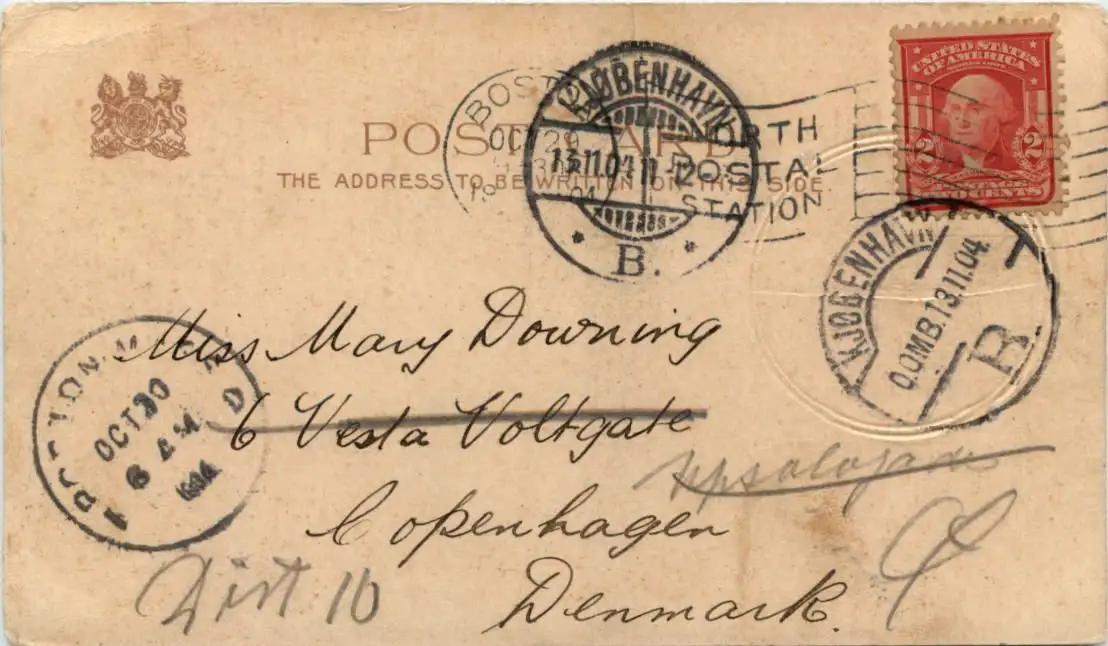 POST CARD
THE ADDRESS TO BE WRITTEN ON THIS SIDE
BOSTON
OCT 29
NORTH
POSTAL
STATION
KJØBENHAVN
13.11.04 11-12
B.
UNITED STATES
OF AMERICA
2 2
TWO CENTS
KJØBENHAVN
O.OMB.13.11.04.
B.
Miss Mary Downing
6 Vesta Voltgate
Copenhagen
Denmark.
OCT 30
6 AM
1904
D
Dist 10